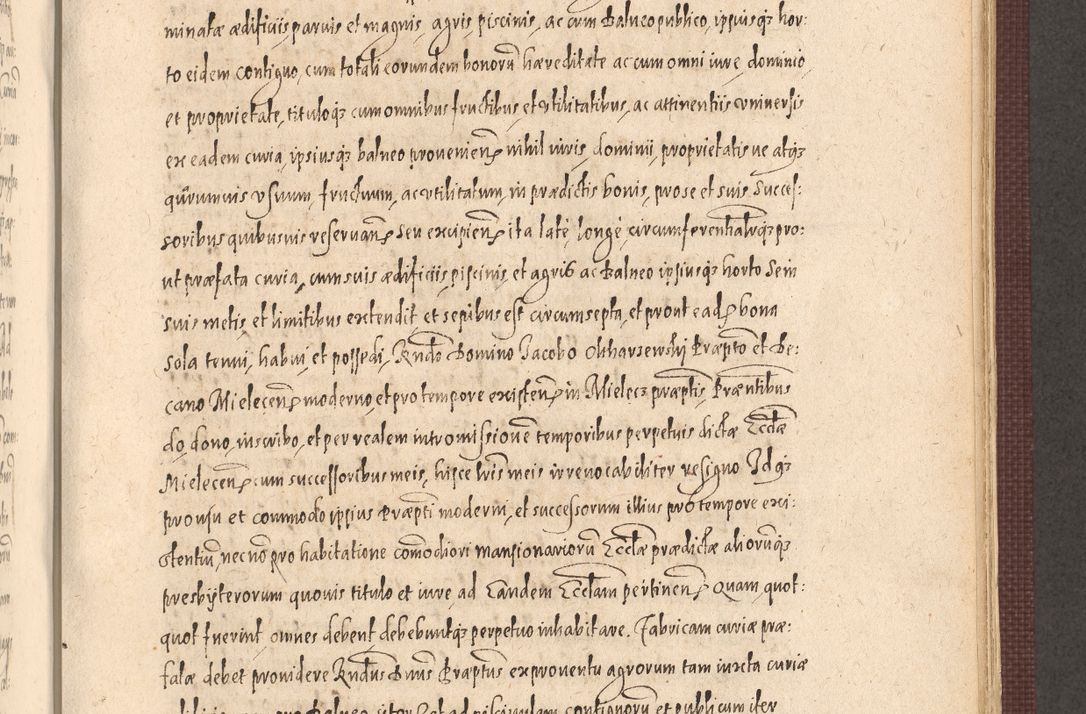 minatæ ædificiis parvis et magnis, agris piscinis, ac cum Balneo publico, ipsiusq3 hor:
to eidem contiguo, cum totali eorundem bonorũ hæreditate ac cum omni iure, dominio,
et proprietate, tituloq3 cum omnibus fructibus, et vtilitatibus, ac attinentiis vniversis
ex eadem curia, ipsiusq3 balneo provenien, nihil iuris, dominii, proprietatis ve atq3
quorumvis vsuum, fructuum, ac vtilitatum, in prædictis bonis, pro se et suis succes:
soribus quibusvis reservan seu excipien, ita late, longe, circumferentialiterq3 pro:
ut præfata curia, cum suis ædificiis, piscinis, et agris ac Balneo ipsiusq3 horto Se in
suis metis, et limitibus extendit, et sepibus est circumsepta, et prout ead bona
sola tenui, habui, et possedi, Rndo Domino Jacobo Ostharzewski Præpto et De:
cano Mielecen moderno, et pro tempore existen in Mielecz præptis, Præntibus
do, dono, inscribo, et per realem intromissionē temporibus perpetuis dictæ Ecclæ
Mielecen cum successoribus meis, hisce lris meis irrevocabiliter resigno Idq3
pro usu et commodo ipsius Præpti moderni, et successorum illius pro tempore exi:
stentiũ, necnõ pro habitatione comõdiori mansionariorũ Ecclæ prædictæ aliorũq3
presbÿterorum quovis titulo et iure ad Eandem Ecclam pertinen. Quam, quot:
quot fuerint omnes debent debebuntq3 perpetuo inhabitare. Fabricam curiæ præ:
fatæ debet providere Rndus Dnus Præptus ex proventu agrorum tam iuxta curiæ
pro Balneo contignorũ et publicum iter